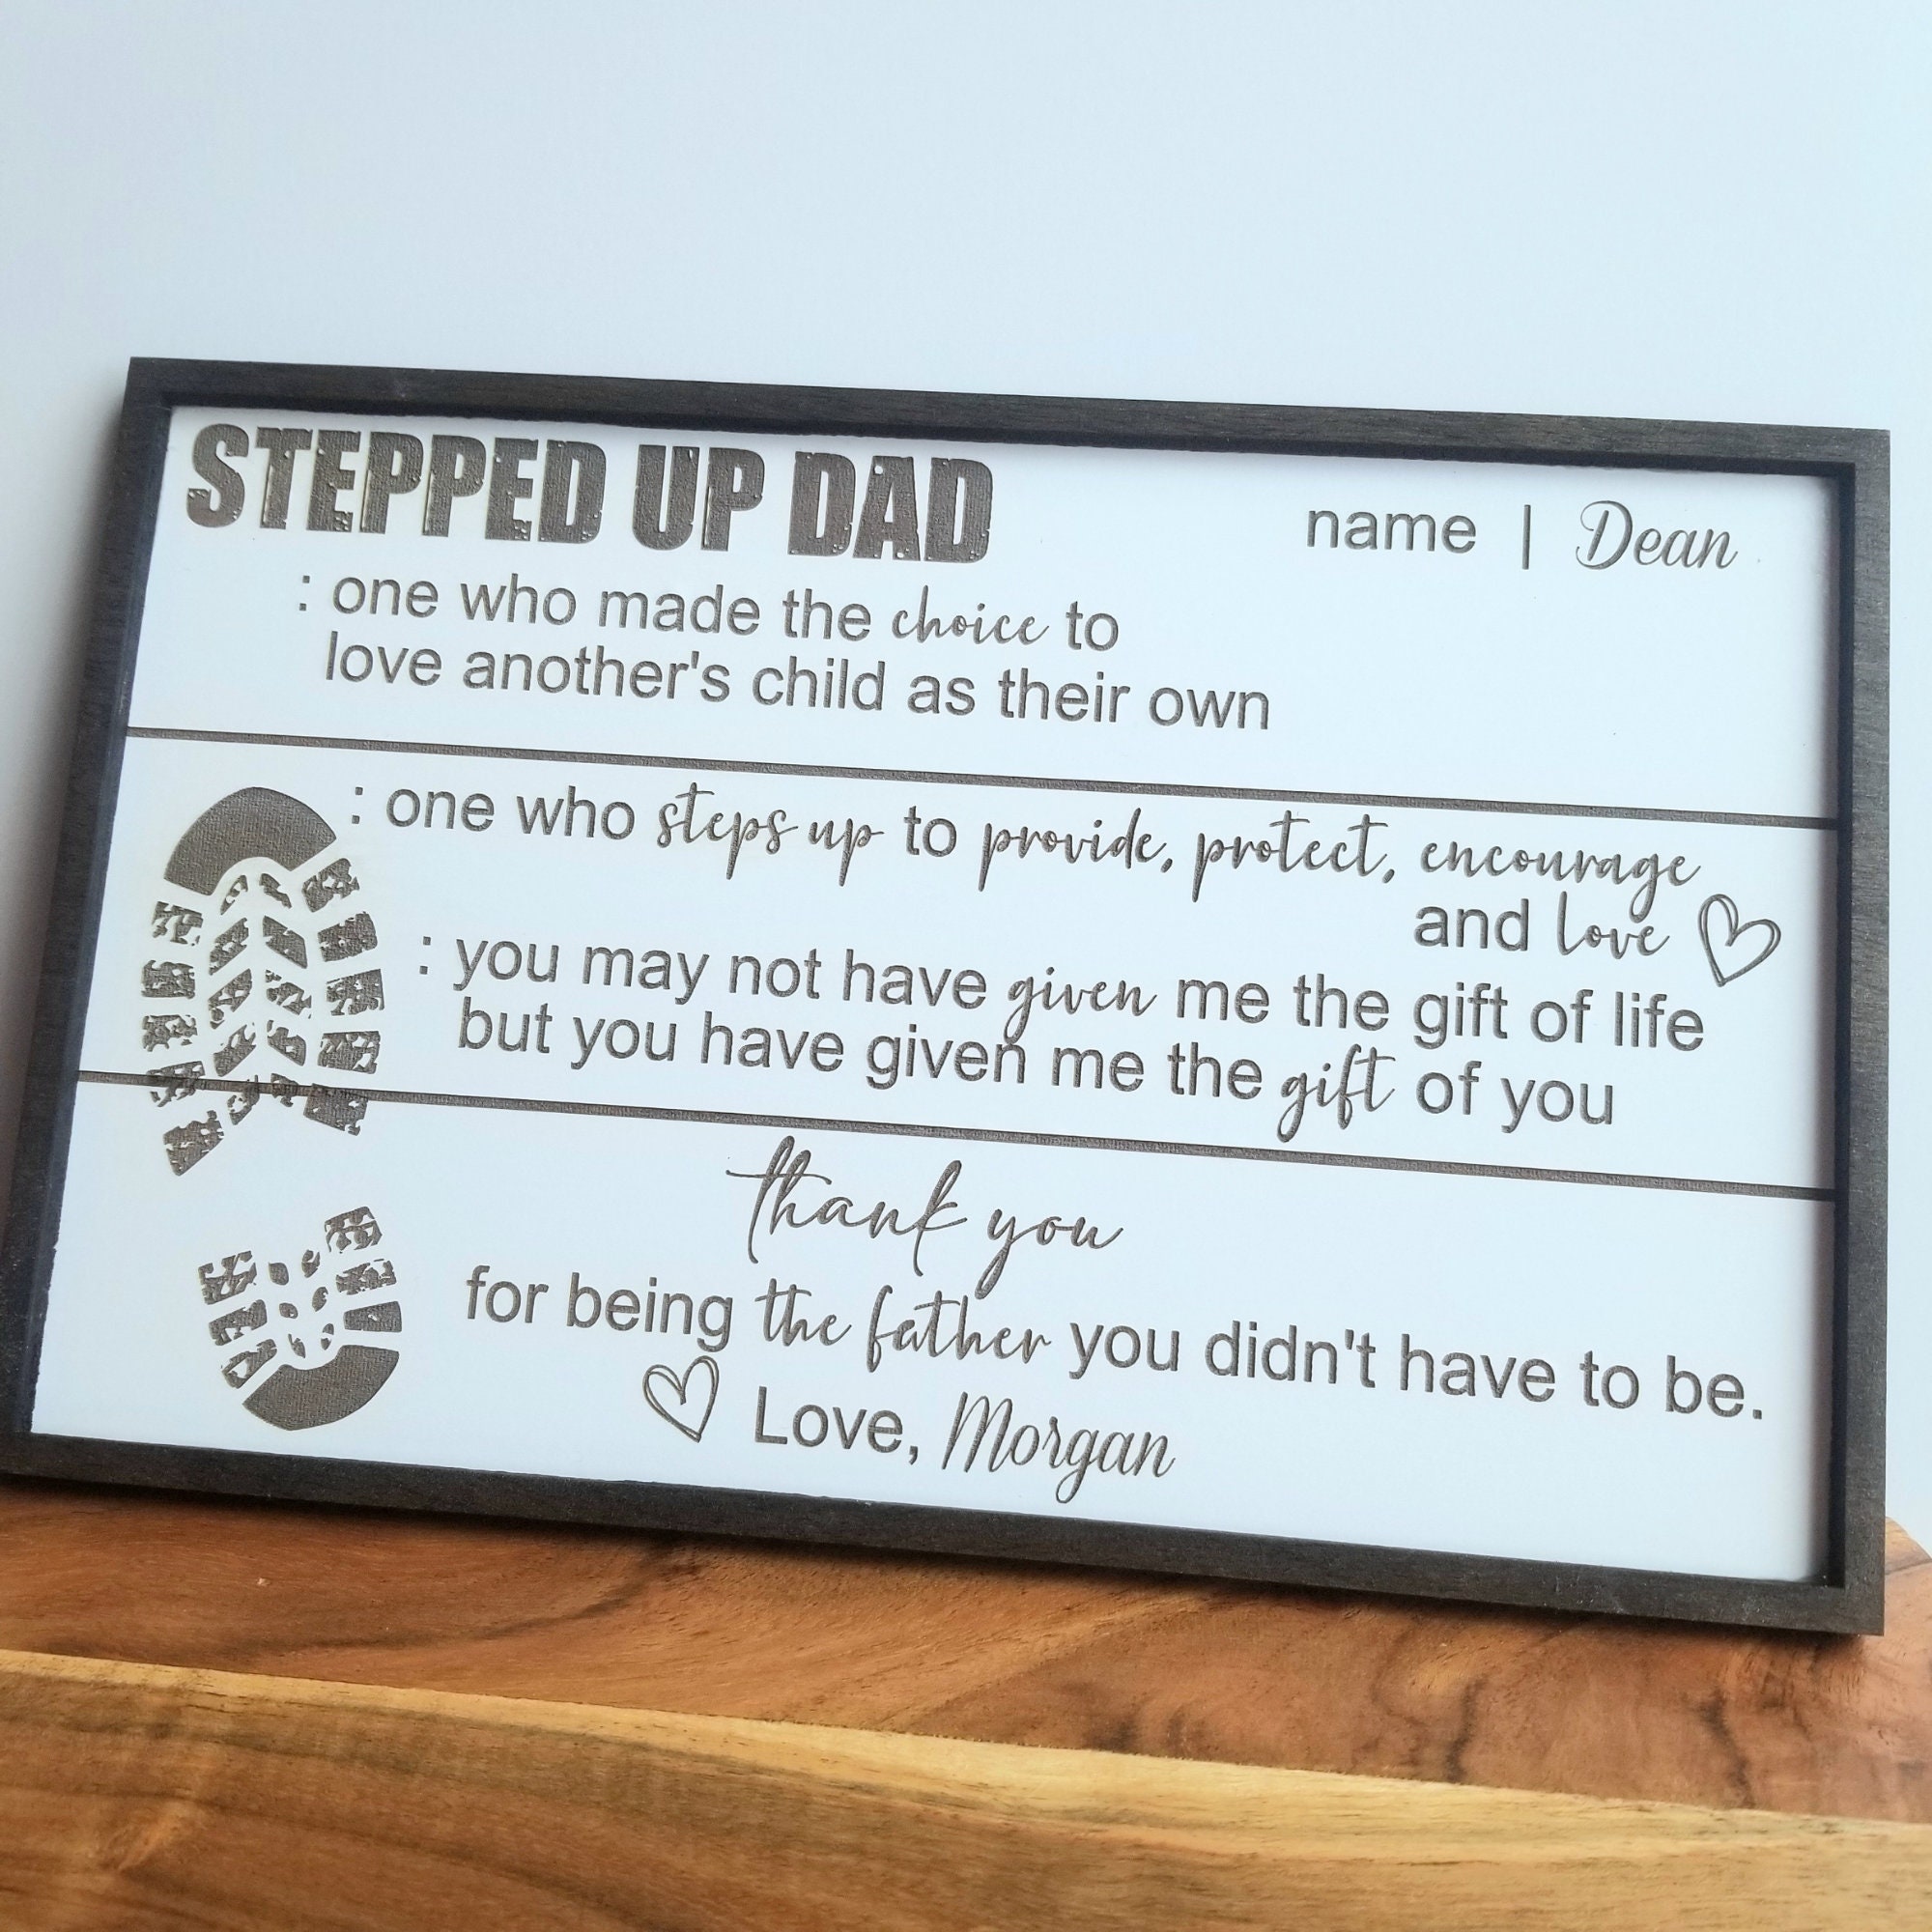 STEPPED UP DAD
name | Dean
: one who made the choice to
love another's child as their own
: one who steps up to provide, protect, encourage
and love
: you may not have given me the gift of life
but you have given me the gift of you
thank you
for being the father you didn't have to be.
Love, Morgan